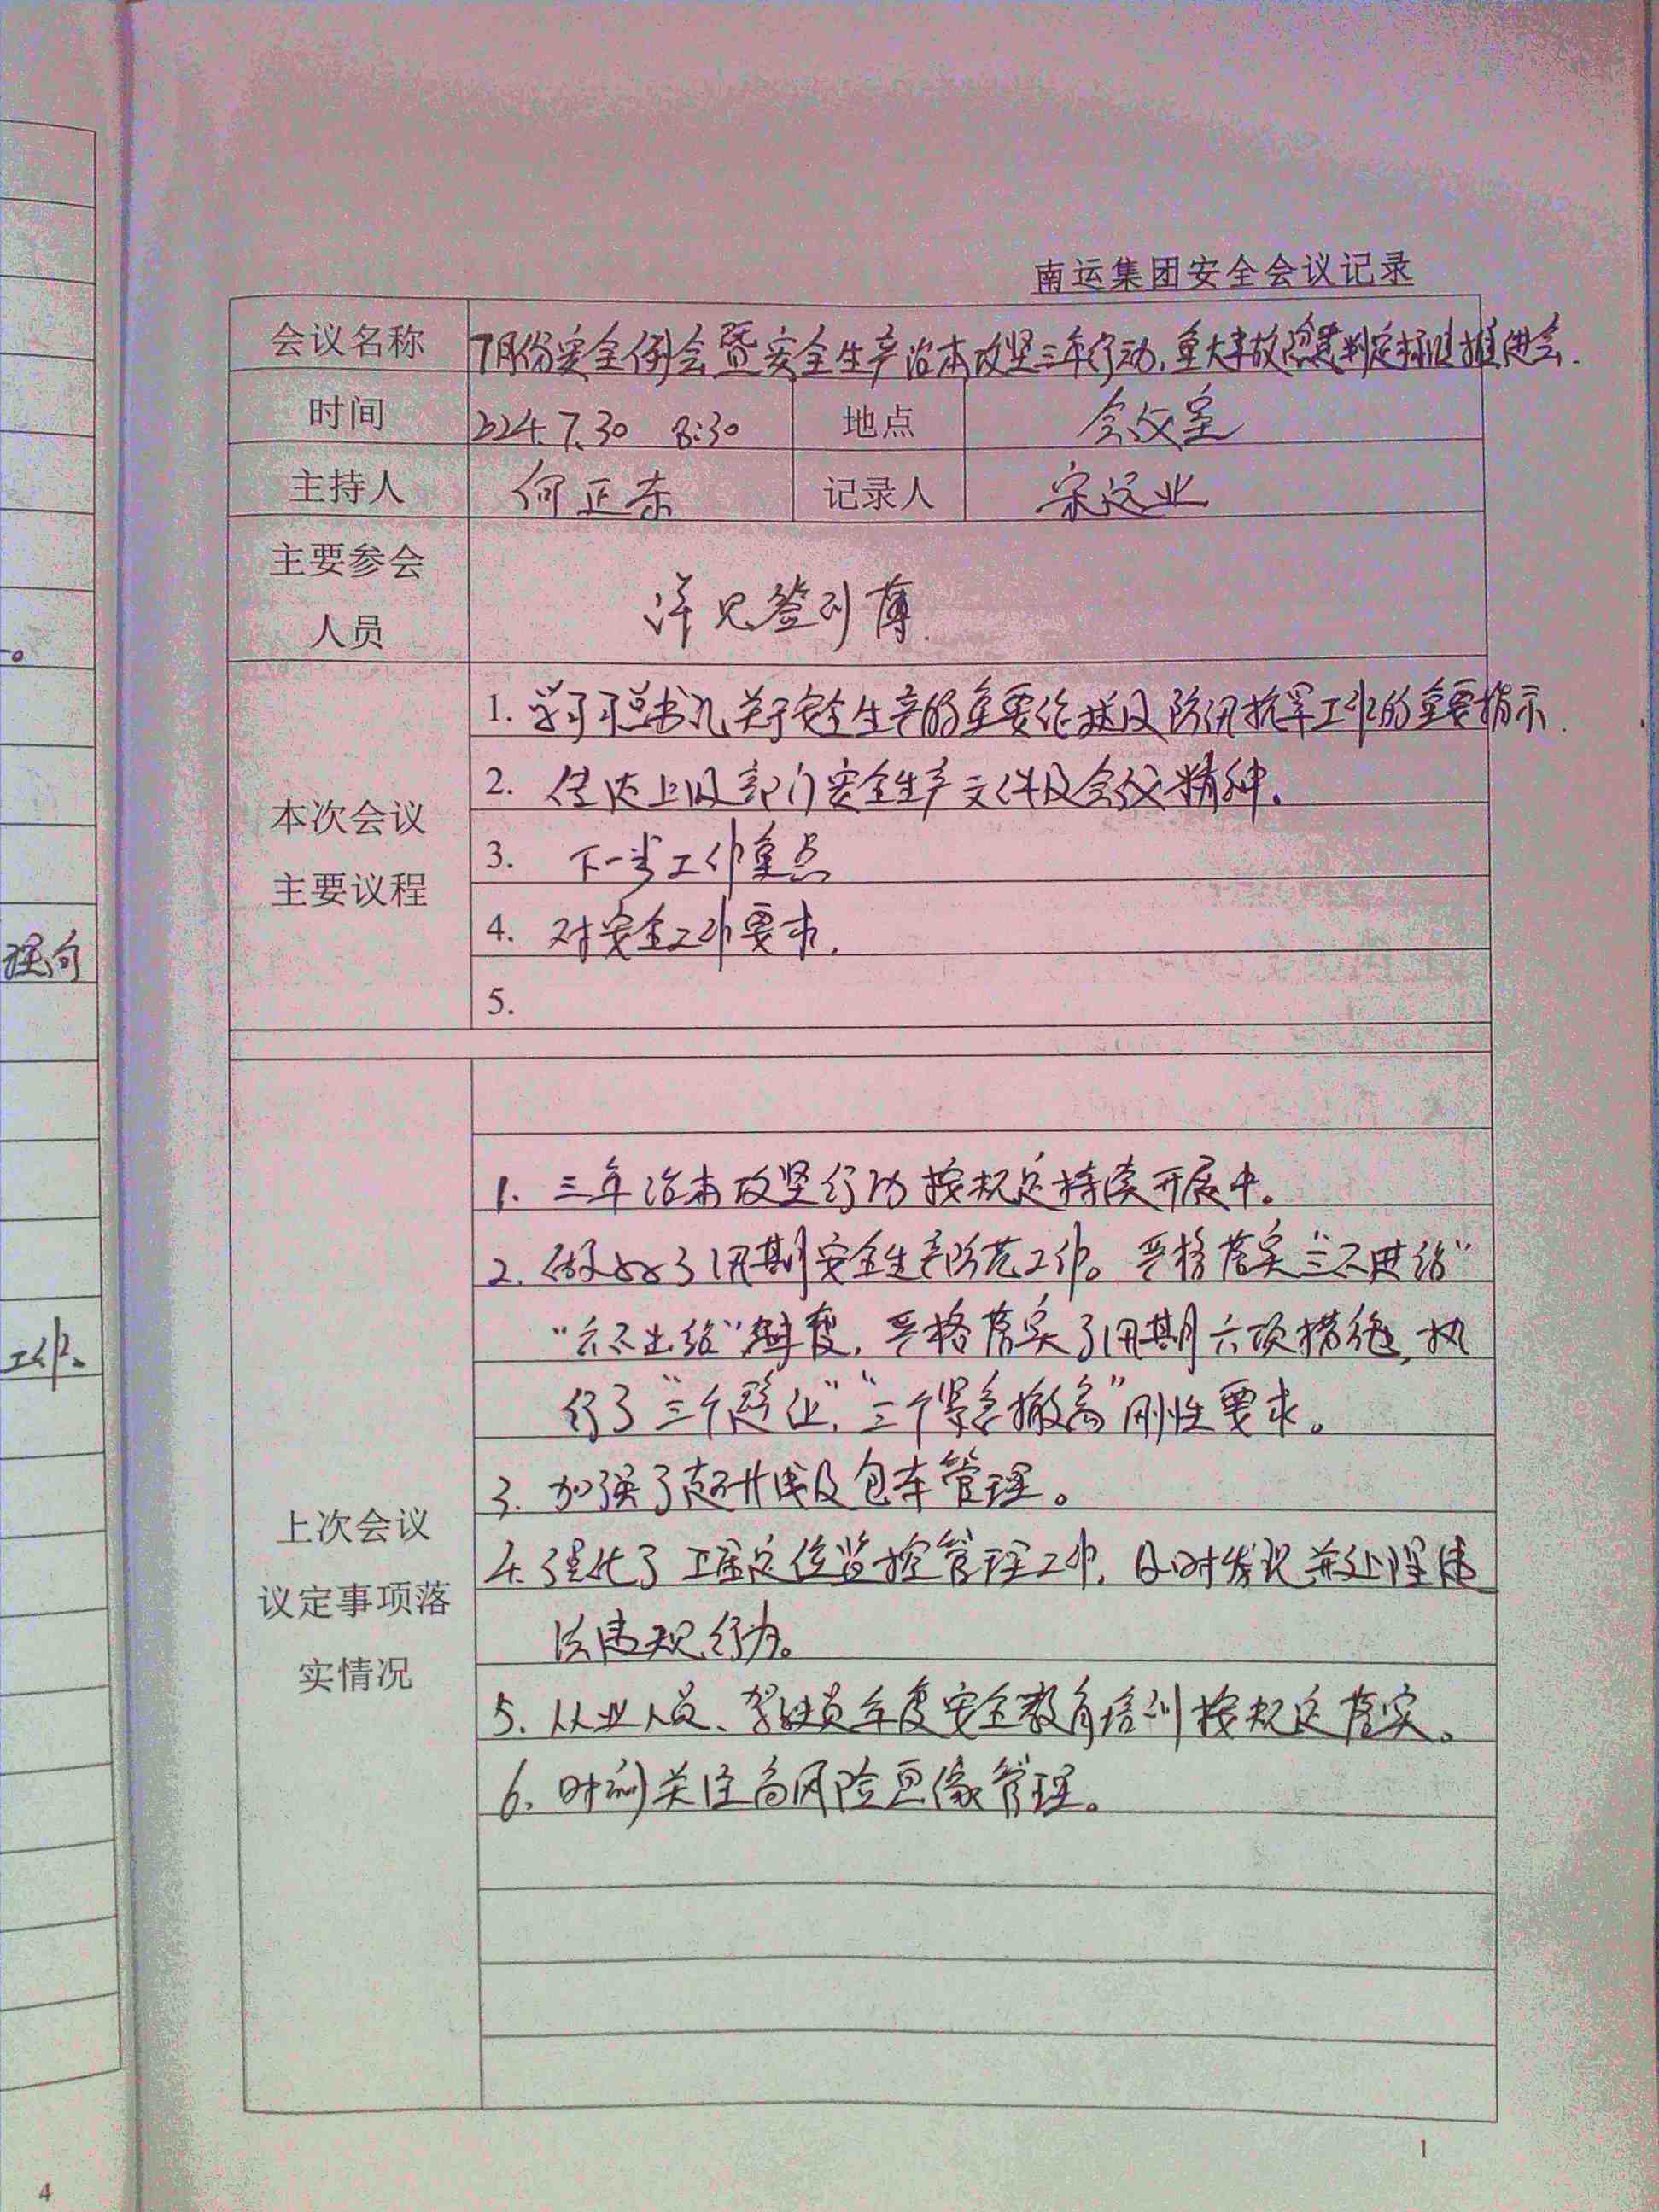 南运集团安全会议记录
会议名称 7月份安全例会暨安全生产治本攻坚三年行动,重大事故隐患判定标准推进会.
时间 2024.7.30 8:30 地点 会议室
主持人 何正东 记录人 宋远业
主要参会
人员
详见签到薄.
1. 学习习总书记关于安全生产的重要论述及防汛抗旱工作的重要指示.
2. 传达上级部门安全生产文件及会议精神.
本次会议
主要议程
3. 下一步工作重点
4. 对安全工作要求.
5.
1. 三年治本攻坚行动按规定持续开展中。
2. 做好了汛期安全生产防范工作。严格落实“三不进站”
“六不出站”制度,严格落实了汛期六项措施,执
行了“三个避让”,“三个紧急撤离”刚性要求。
3. 加强了超开线及包车管理。
上次会议
议定事项落
实情况
4. 强化了卫星定位监控管理工作,及时发现并处理违
法违规行为。
5. 从业人员、驾驶员年度安全教育培训按规定落实。
6. 时刻关注高风险画像管理。
1
理向
工作.
4